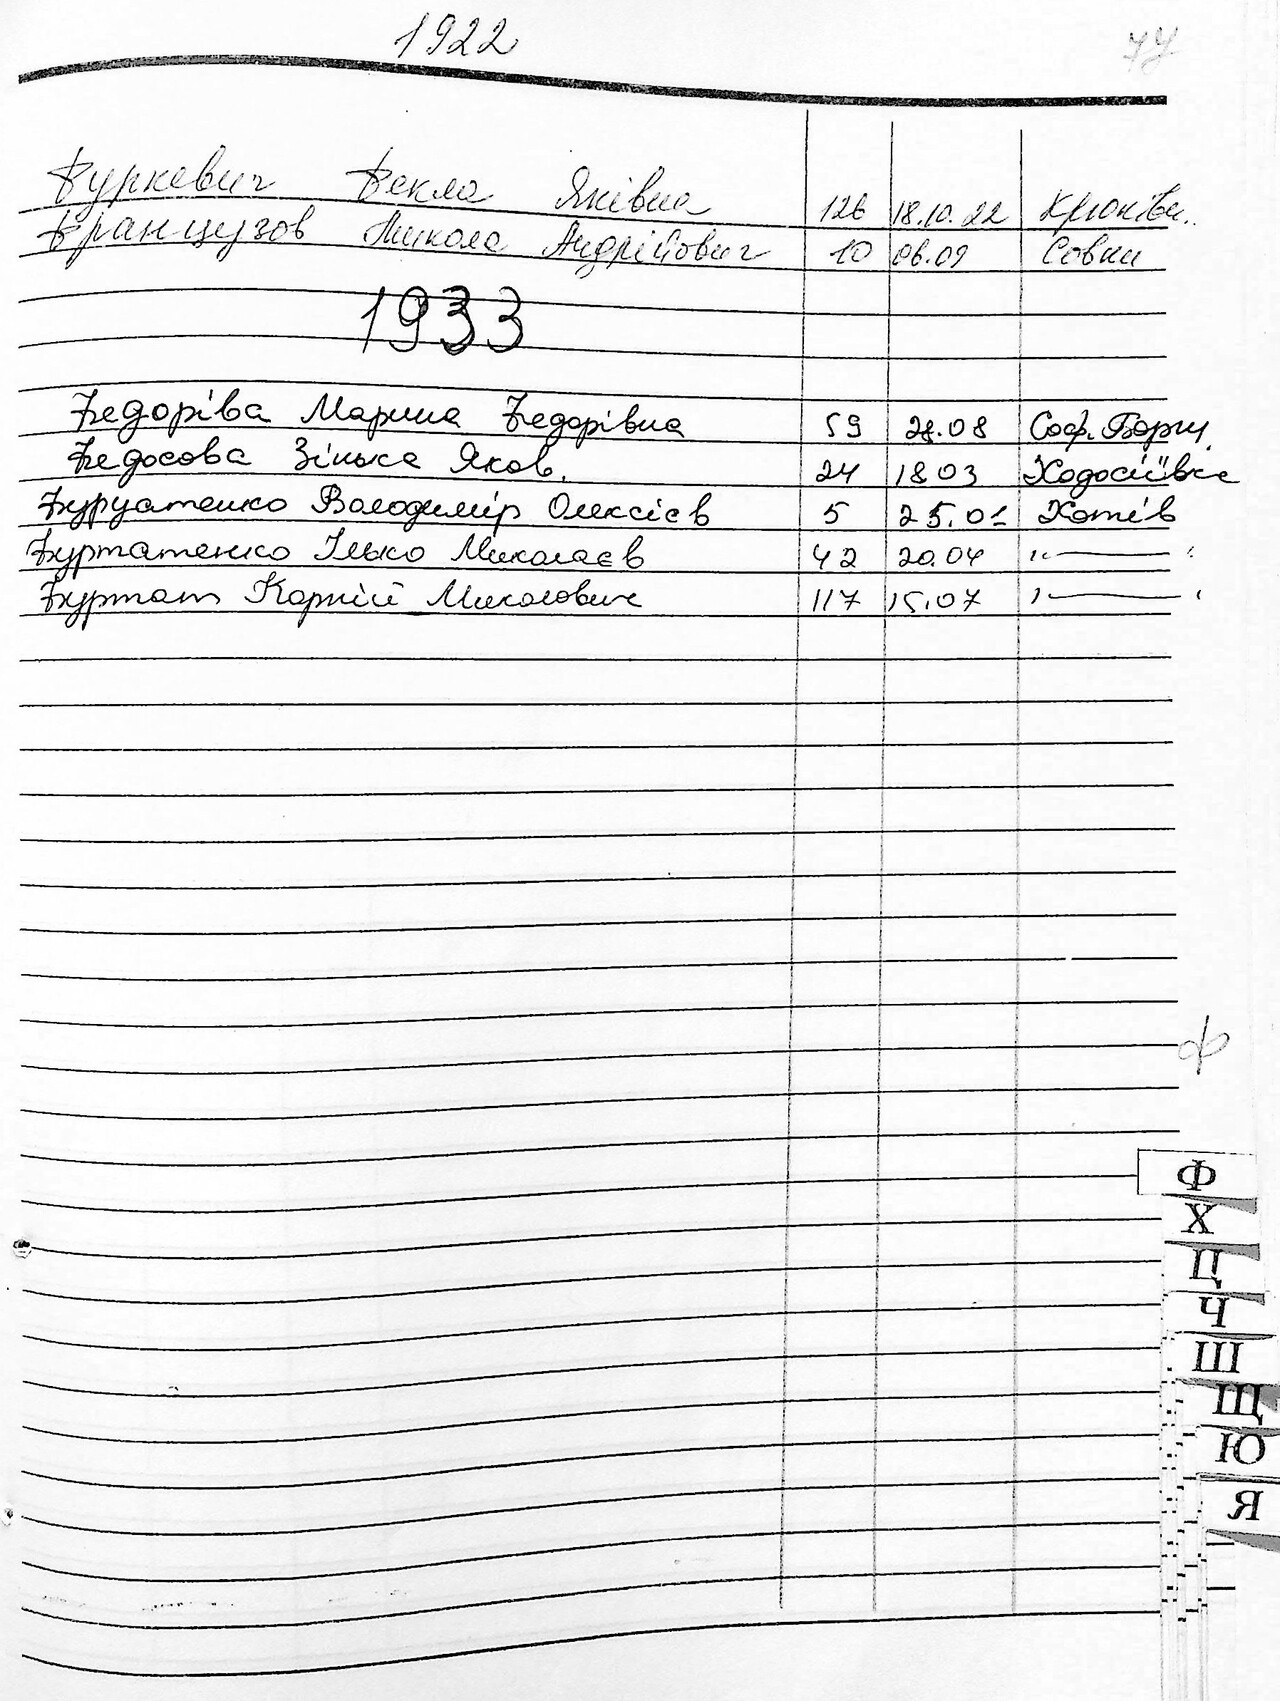 1922
Фуркевич Фекла Яківна 126 18.10.22 Крюків..
Французов Микола Андрійович 10 06.09 Совки
1933
Федоріва Марина Федорівна 59 28.08 Соф. Борщ.
Федосова Зінька Яков. 24 18.03 Ходосіївка
Володимір Олексієв 5 25.01 Хотів
Фуртатенко Ілько Миколаєв 42 20.04 "——"
Фуртат Корній Миколович 117 15.07 "——"
ф
Ф
Х
Ц
Ч
Ш
Щ
Ю
Я